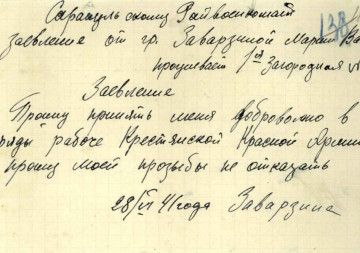 Сарапульскому Райвоенкомат
138
заевление от гр. Заварзиной Марии Ва
проживает 1ая Загородная
Заевление
Прошу принять меня добровольно в
ряды рабоче Крестянской Красной Арми
прошу моей прозьбы не отказать
28/VI 41 года Заварзина